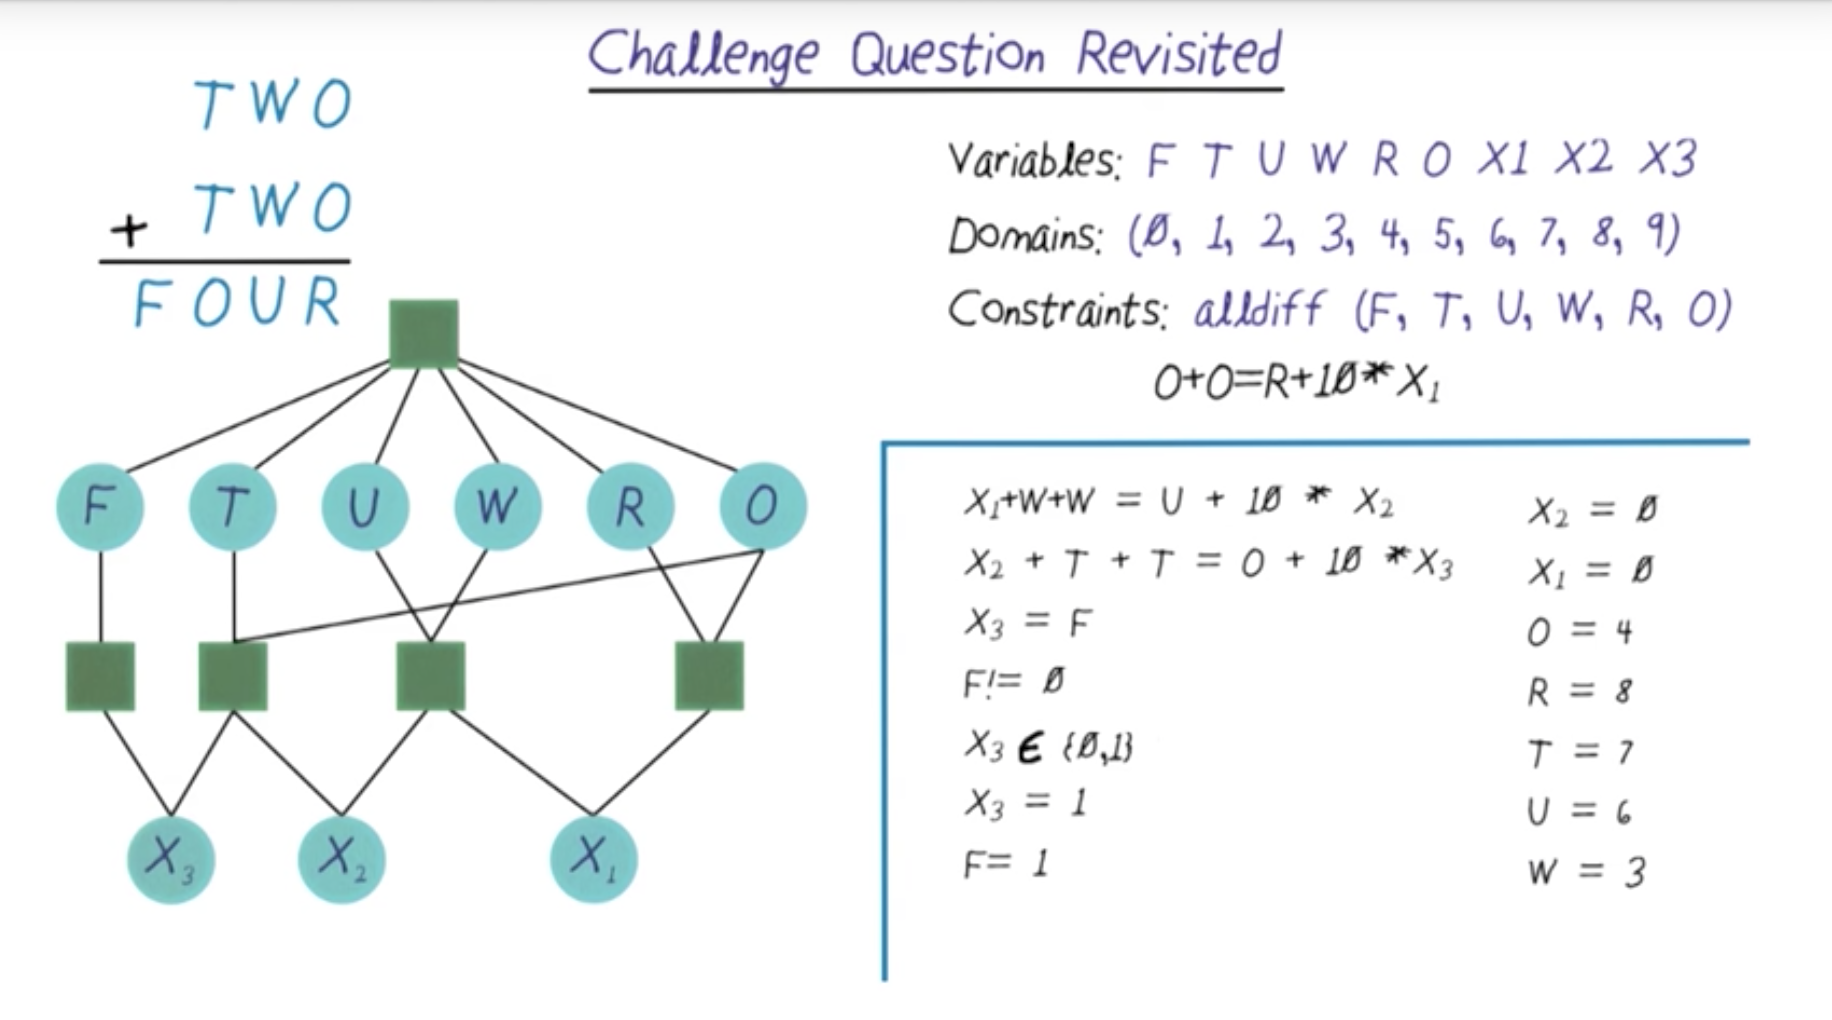 Challenge Question Revisited
T W O
T W O
+
F O U R
Variables: F T U W R O X1 X2 X3
Domains: (0, 1, 2, 3, 4, 5, 6, 7, 8, 9)
Constraints: alldiff (F, T, U, W, R, O)
O+O=R+10*X₁
F T U W R O
X₃ X₂ X₁
X₁+W+W = U + 10 * X₂
X₂ + T + T = O + 10 *X₃
X₃ = F
F!= 0
X₃ ∈ {0,1}
X₃ = 1
F= 1
X₂ = 0
X₁ = 0
O = 4
R = 8
T = 7
U = 6
W = 3